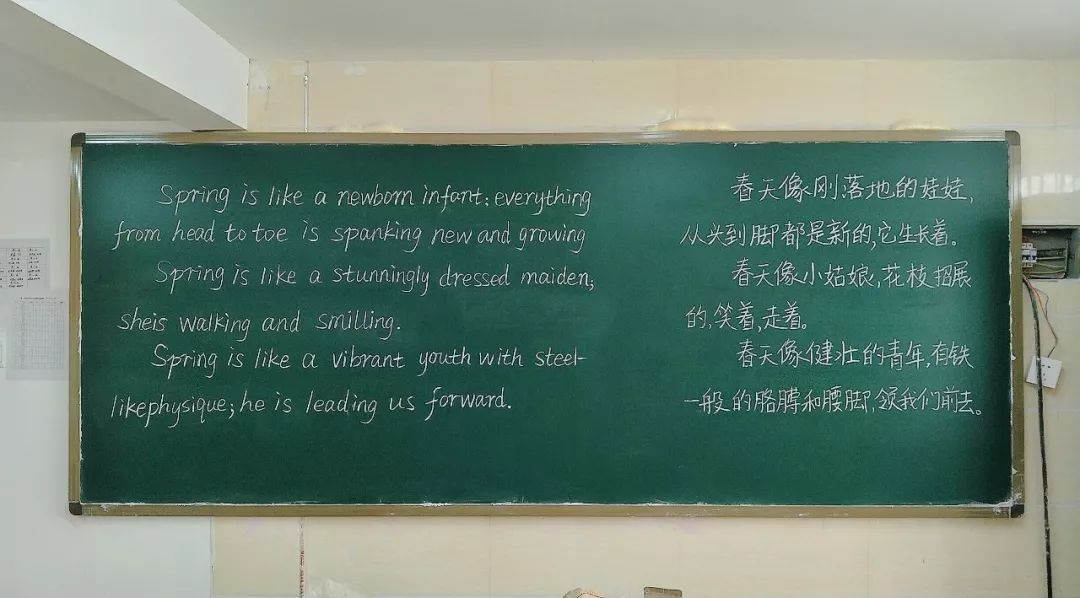 Spring is like a newborn infant: everything
from head to toe is spanking new and growing
Spring is like a stunningly dressed maiden;
sheis walking and smilling.
Spring is like a vibrant youth with steel-
likephysique; he is leading us forward.
春天像刚落地的娃娃,
从头到脚都是新的,它生长着。
春天像小姑娘,花枝招展
的,笑着,走着。
春天像健壮的青年,有铁
一般的胳膊和腰脚,领我们前去。